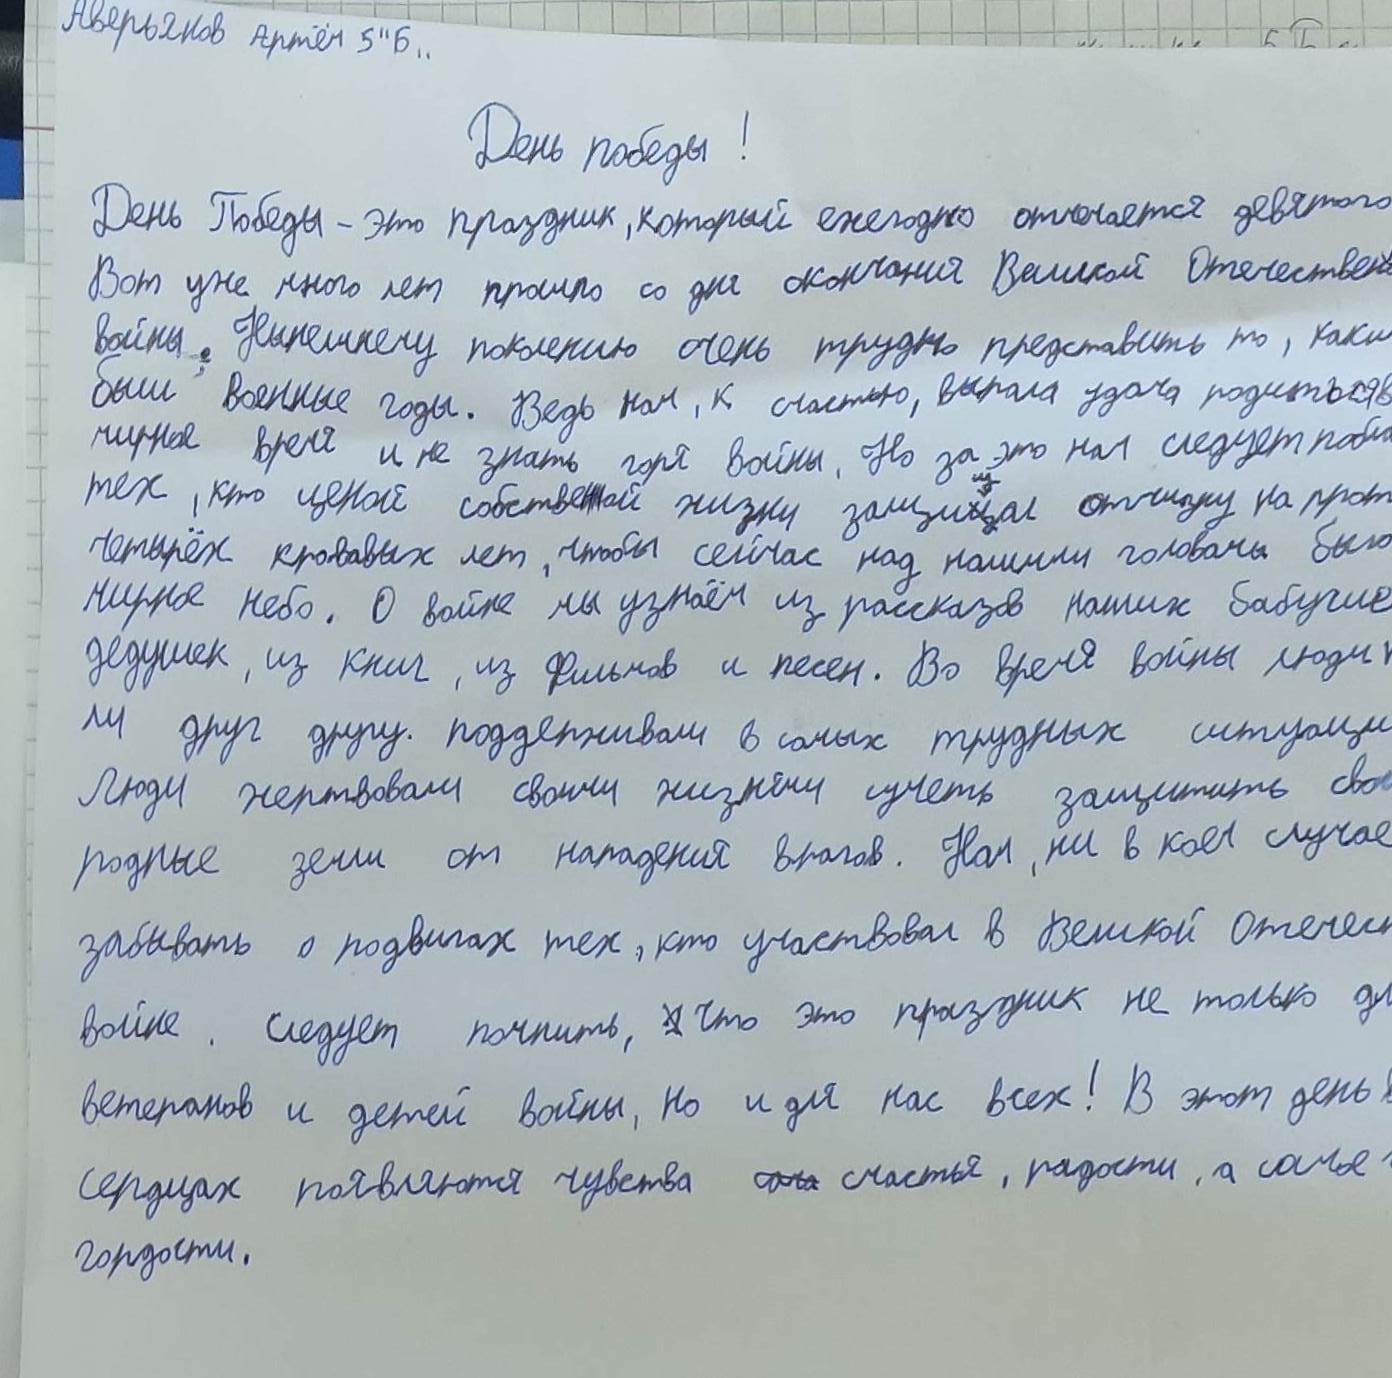 Аверьянов Артём 5"Б„
День победы!
День Победы – это праздник, который ежегодно отмечается девятого
Вот уже много лет прошло со дня окончания Великой Отечествен
войны. Нынешнему поколению очень трудно представить то, каки
были военные годы. Ведь нам, к счастью, выпала удача родиться в
мирное время и не знать горя войны. Но за это нам следует побла
тех, кто ценой собственной жизни защищал отчизну на прот
четырёх кровавых лет, чтобы сейчас над нашими головами было
мирное небо. О войне мы узнаём из рассказов наших бабуше
дедушек, из книг, из фильмов и песен. Во время войны люди
ли друг другу. поддерживали в самых трудных ситуаци
Люди жертвовали своими жизнями защитить сво
родные земли от нападения врагов. Нам, ни в коем случае
забывать о подвигах тех, кто участвовал в Великой Отечест
войне. Следует помнить, что это праздник не только дл
ветеранов и детей войны, но и для нас всех! В этот день в
сердцах появляются чувства счастья, радости, а самое
гордости.